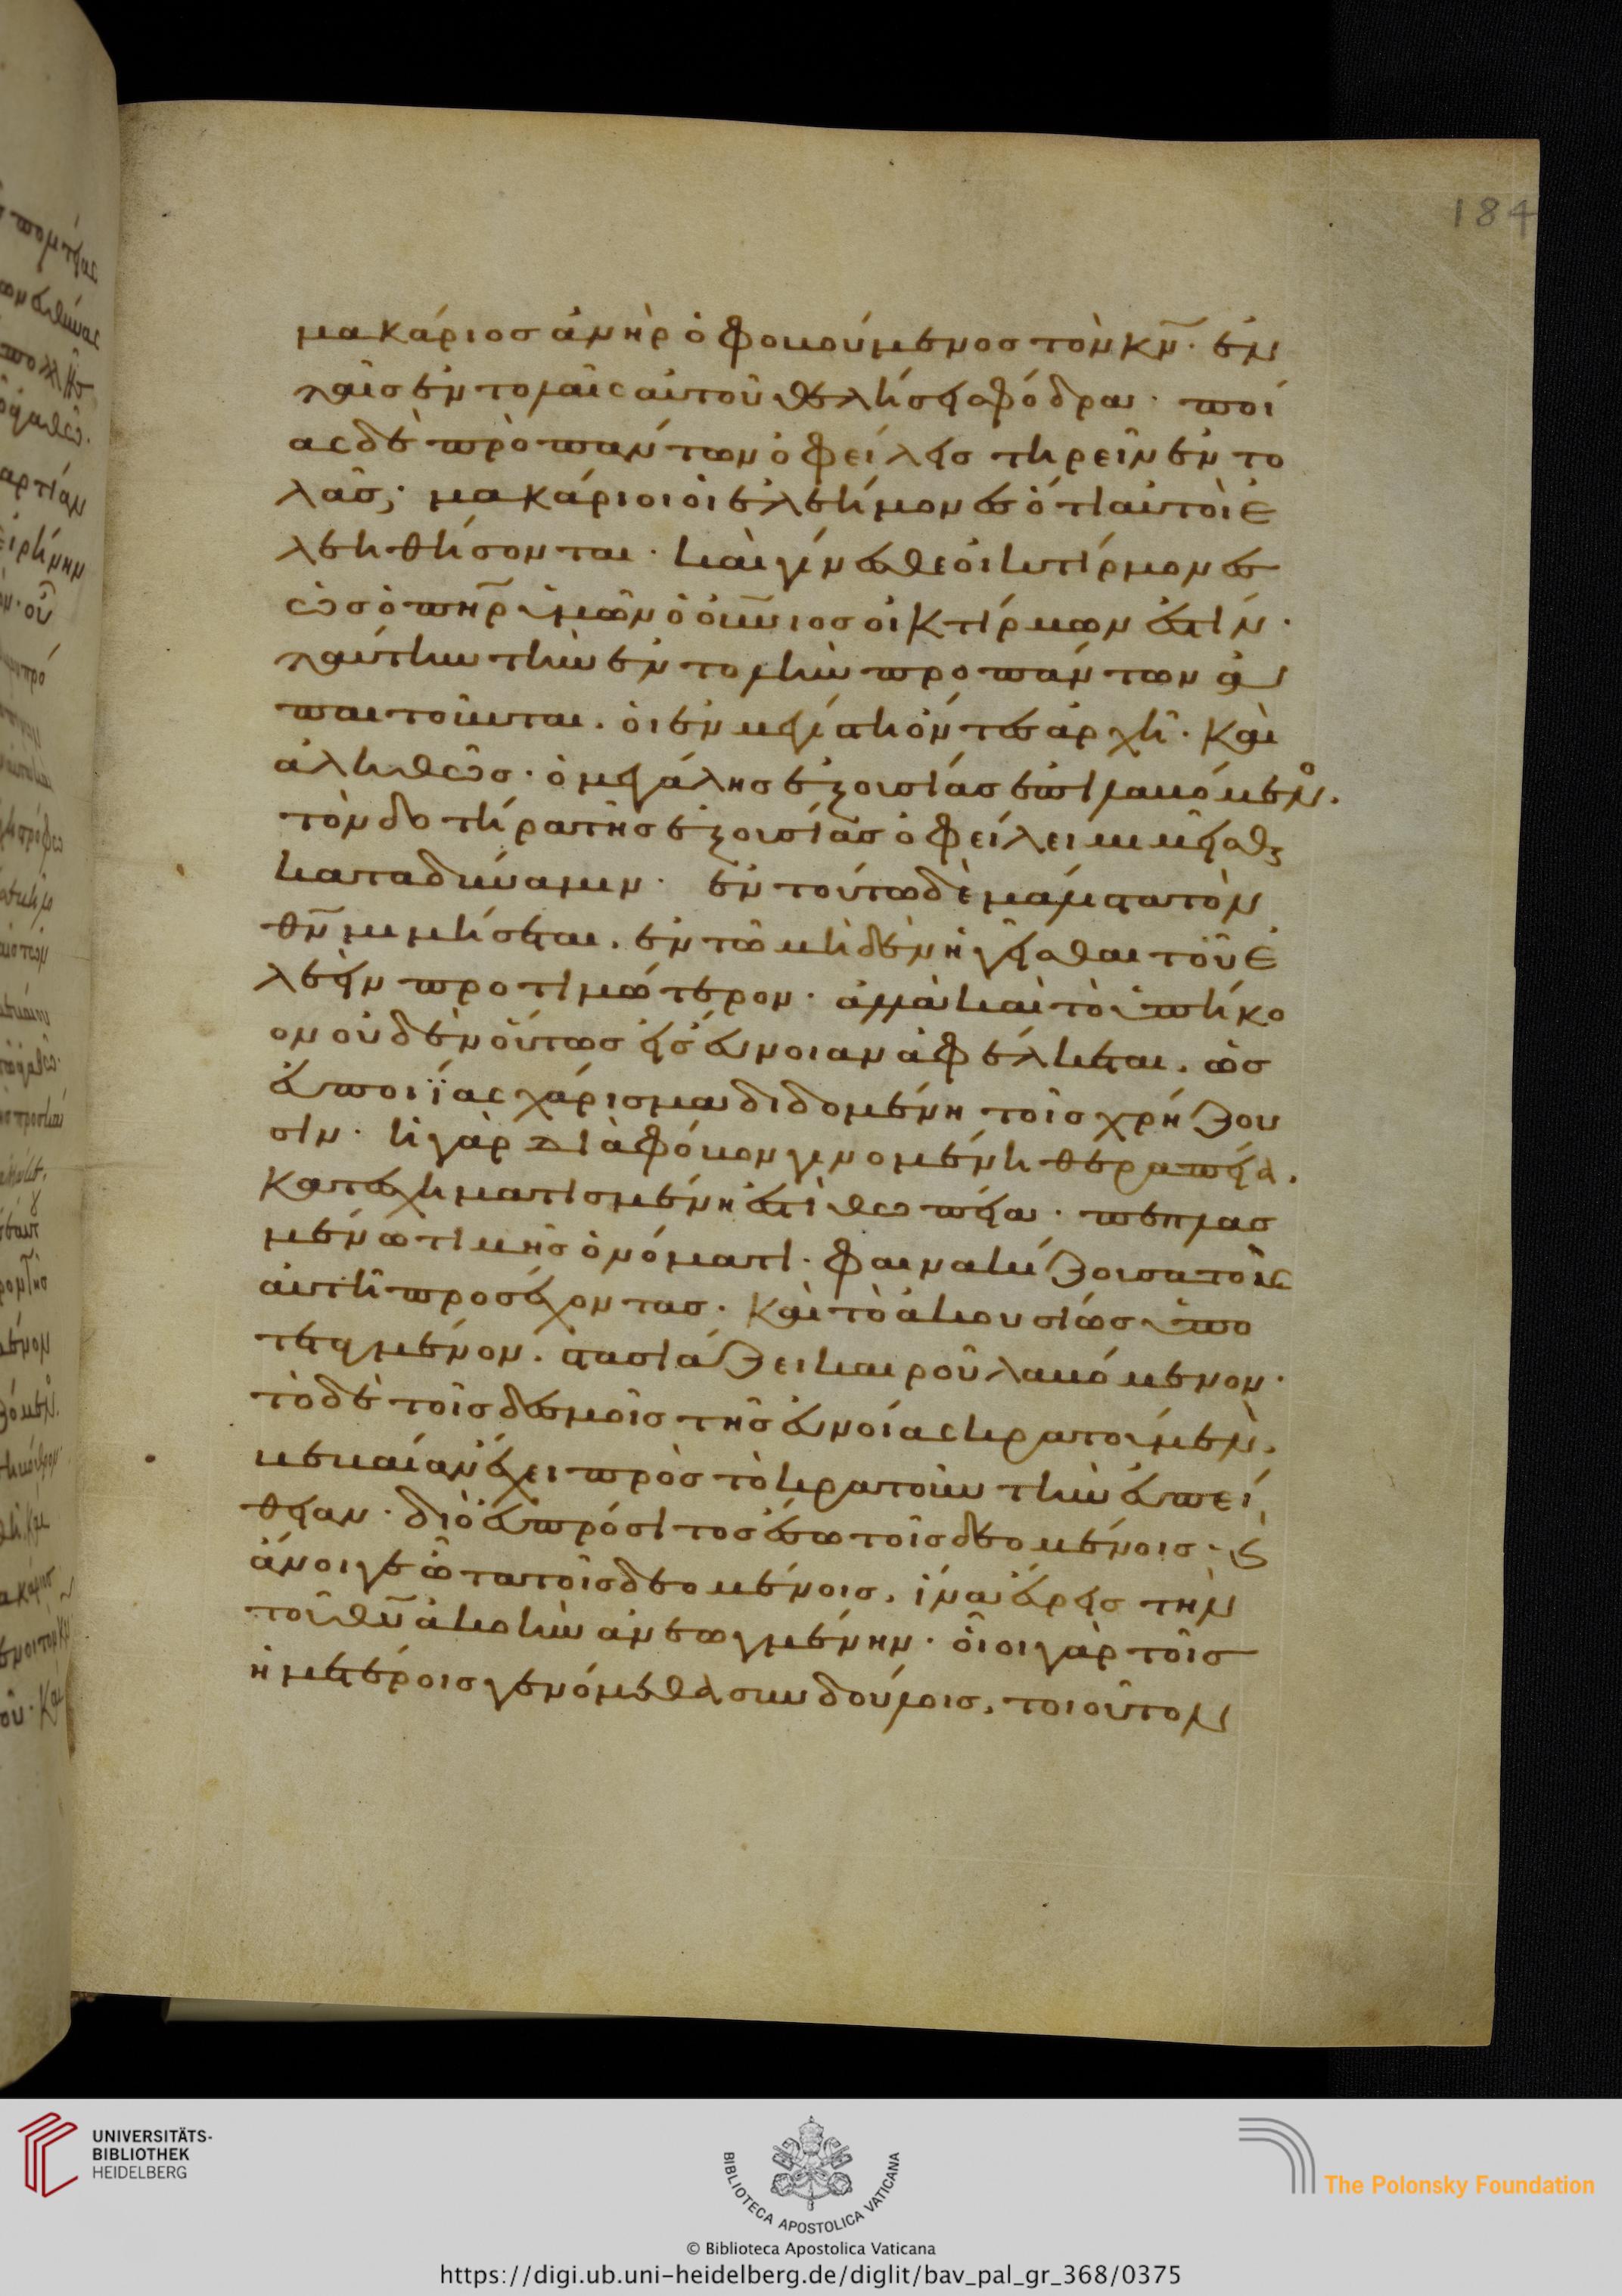 μακάριος ἀνὴρ ὁ φοβούμενος τὸν κν̄· ἐν
ταῖς ἐντολαῖς αὐτοῦ θελήσει σφόδρα· ποί
ας δὲ πρὸ πάντων ὀφείλεις τηρεῖν ἐντο
λάς; μακάριοι οἱ ἐλεήμονες ὅτι αὐτοὶ ἐ
λεηθήσονται· καὶ γίνεσθε οἰκτίρμονες
ὡς ὁ πη̄ρ ὑμῶν ὁ οὐ̄νιος οἰκτίρμων ἐστίν·
ταύτην τὴν ἐντολὴν προ πάντων ἀ
παιτοῦνται. οἱ ἐν μεγίστη ὄντες ἀρχῆ· καὶ
ἀληθῶς· ὁ μεγάλης ἐξουσίας ἐπιλαβόμενο.
τὸν δοτῆρα τῆς ἐξουσίας ὀφείλει μιμεῖσθ
κατα δύναμιν· ἐν τούτω δὲ μάλιστα τὸν
θν̄ μιμήσεται. ἐν τῶ μηδὲν ἡγεῖσθαι τοῦ ἐ
λεεῖν προτιμώτερον· ἀλλὰ καὶ τὸ ὑπήκο
ον οὐδὲν οὕτως εἰς εὔνοιαν ἀφέλκεται. ὡς
εὐποιΐας χάρισμα διδομένη τοῖς χρήζου
σιν· ἡ γὰρ διὰ φόβον γινομένη θεραπεία.
κατεσχηματισμένη ἐστὶ θωπεία· πεπλασ
μένω τιμῆς ὀνόματι· φαινακίζουσα τοὺς
αὐτῆ προσέχοντας· καὶ τὸ ἀκουσίως ὑπο
τεταγμένον. στασιάζει καιροῦ λαβόμενον·
τὸ δὲ τοῖς δεσμοῖς τῆς εὐνοίας κρατούμεν.
βεβαίαν ἔχει πρὸς τὸ κρατοῦν τὴν εὐπεί
θειαν· διὸ εὐπρόσιτος ἔσω τοῖς δεομένοις· ϗ
ἄνοιγε ὦτα τοῖς δεομένοις. ἵνα εὕρεις τὴν
τοῦ θῡ ἀκοὴν ἀνεωγμένην· οἷοι γὰρ τοῖς
ἡμετέροις γενόμεθα συνδούλοις. τοιοῦτον
184
UNIVERSITÄTS-
BIBLIOTHEK
HEIDELBERG
BIBLIOTECA APOSTOLICA VATICANA
The Polonsky Foundation
© Biblioteca Apostolica Vaticana
https://digi.ub.uni-heidelberg.de/diglit/bav_pal_gr_368/0375